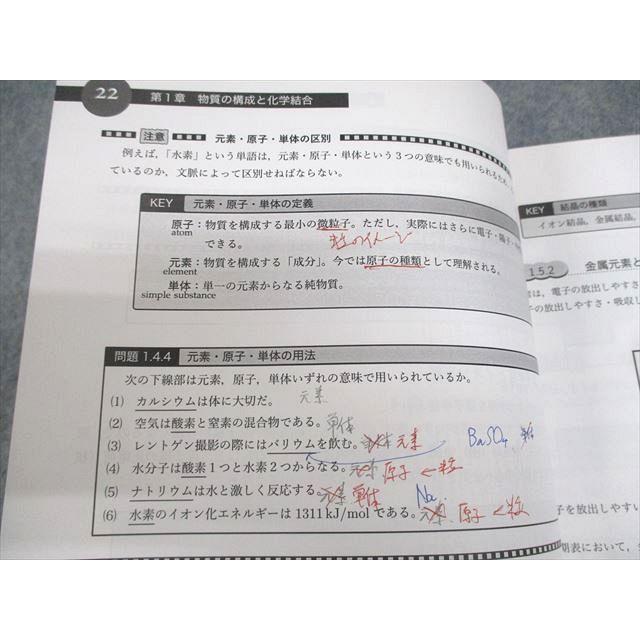 22 第1章 物質の構成と化学結合
注意 元素・原子・単体の区別
例えば,「水素」という単語は,元素・原子・単体という3つの意味でも用いられるため,
ているのか,文脈によって区別せねばならない.
KEY 元素・原子・単体の定義
原子:物質を構成する最小の微粒子.ただし,実際にはさらに電子・陽子・
atom
粒のイメージ
できる.
元素:物質を構成する「成分」.今では原子の種類として理解される.
element
単体:単一の元素からなる純物質.
simple substance
問題 1.4.4 元素・原子・単体の用法
次の下線部は元素,原子,単体いずれの意味で用いられているか.
(1) カルシウムは体に大切だ. 元素
(2) 空気は酸素と窒素の混合物である. 単体
(3) レントゲン撮影の際にはバリウムを飲む. 単体 元素 BaSO4
(4) 水分子は酸素1つと水素2つからなる. 元素 原子 ←粒
(5) ナトリウムは水と激しく反応する. 元素 単体 Na
(6) 水素のイオン化エネルギーは 1311 kJ/mol である. 元素 原子 ←粒
KEY 結晶の種類
イオン結晶,金属結晶,
1.5.2 金属元素と
は,電子の放出しやすさ
の放出しやすさ・吸収し
子を放出しやすい
期表において,